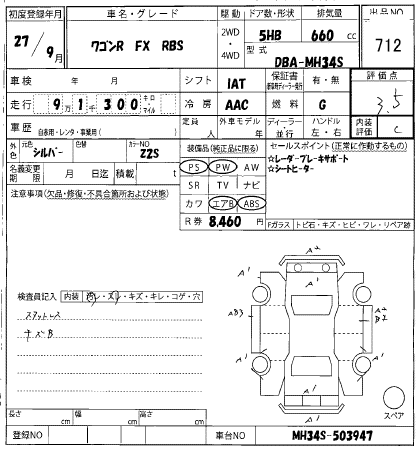 初度登録年月 車名・グレード 駆動 ドア数・形状 排気量 出品NO
27/9月 ワゴンR FX RBS 2WD・4WD 5HB 660cc 712
型式 DBA-MH34S
車検 年 月 シフト IAT 保証書 有・無 評価点
走行 9万1千300キロ・マイル 冷房 AAC 燃料 G 3.5
車歴 自家用・レンタ・事業用( ) 定員 人 外車モデル 年 ディーラー・並行 ハンドル 左・右 内装評価 C
外色 元色 シルバー 色替 カラーNO Z2S 装備品(純正品に限る) セールスポイント(正常に作動するもの)
名義変更期限 月 日迄 積載 t PS PW AW ☆レーダーブレーキサポート
☆シートヒーター
注意事項(欠品・修復・不具合箇所および状態) SR TV ナビ
カワ エアB ABS
R券 8,460円 Fガラス トビ石・キズ・ヒビ・ワレ・リペア跡
検査員記入 内装 汚レ・スレ・キズ・キレ・コゲ・穴
スタットレス
キズB
A2
A' A'
AB3 A2
B2
A' A'
A'
A' A'
スペア
長さ cm 幅 cm 高さ cm
登録NO 車台NO MH34S-503947